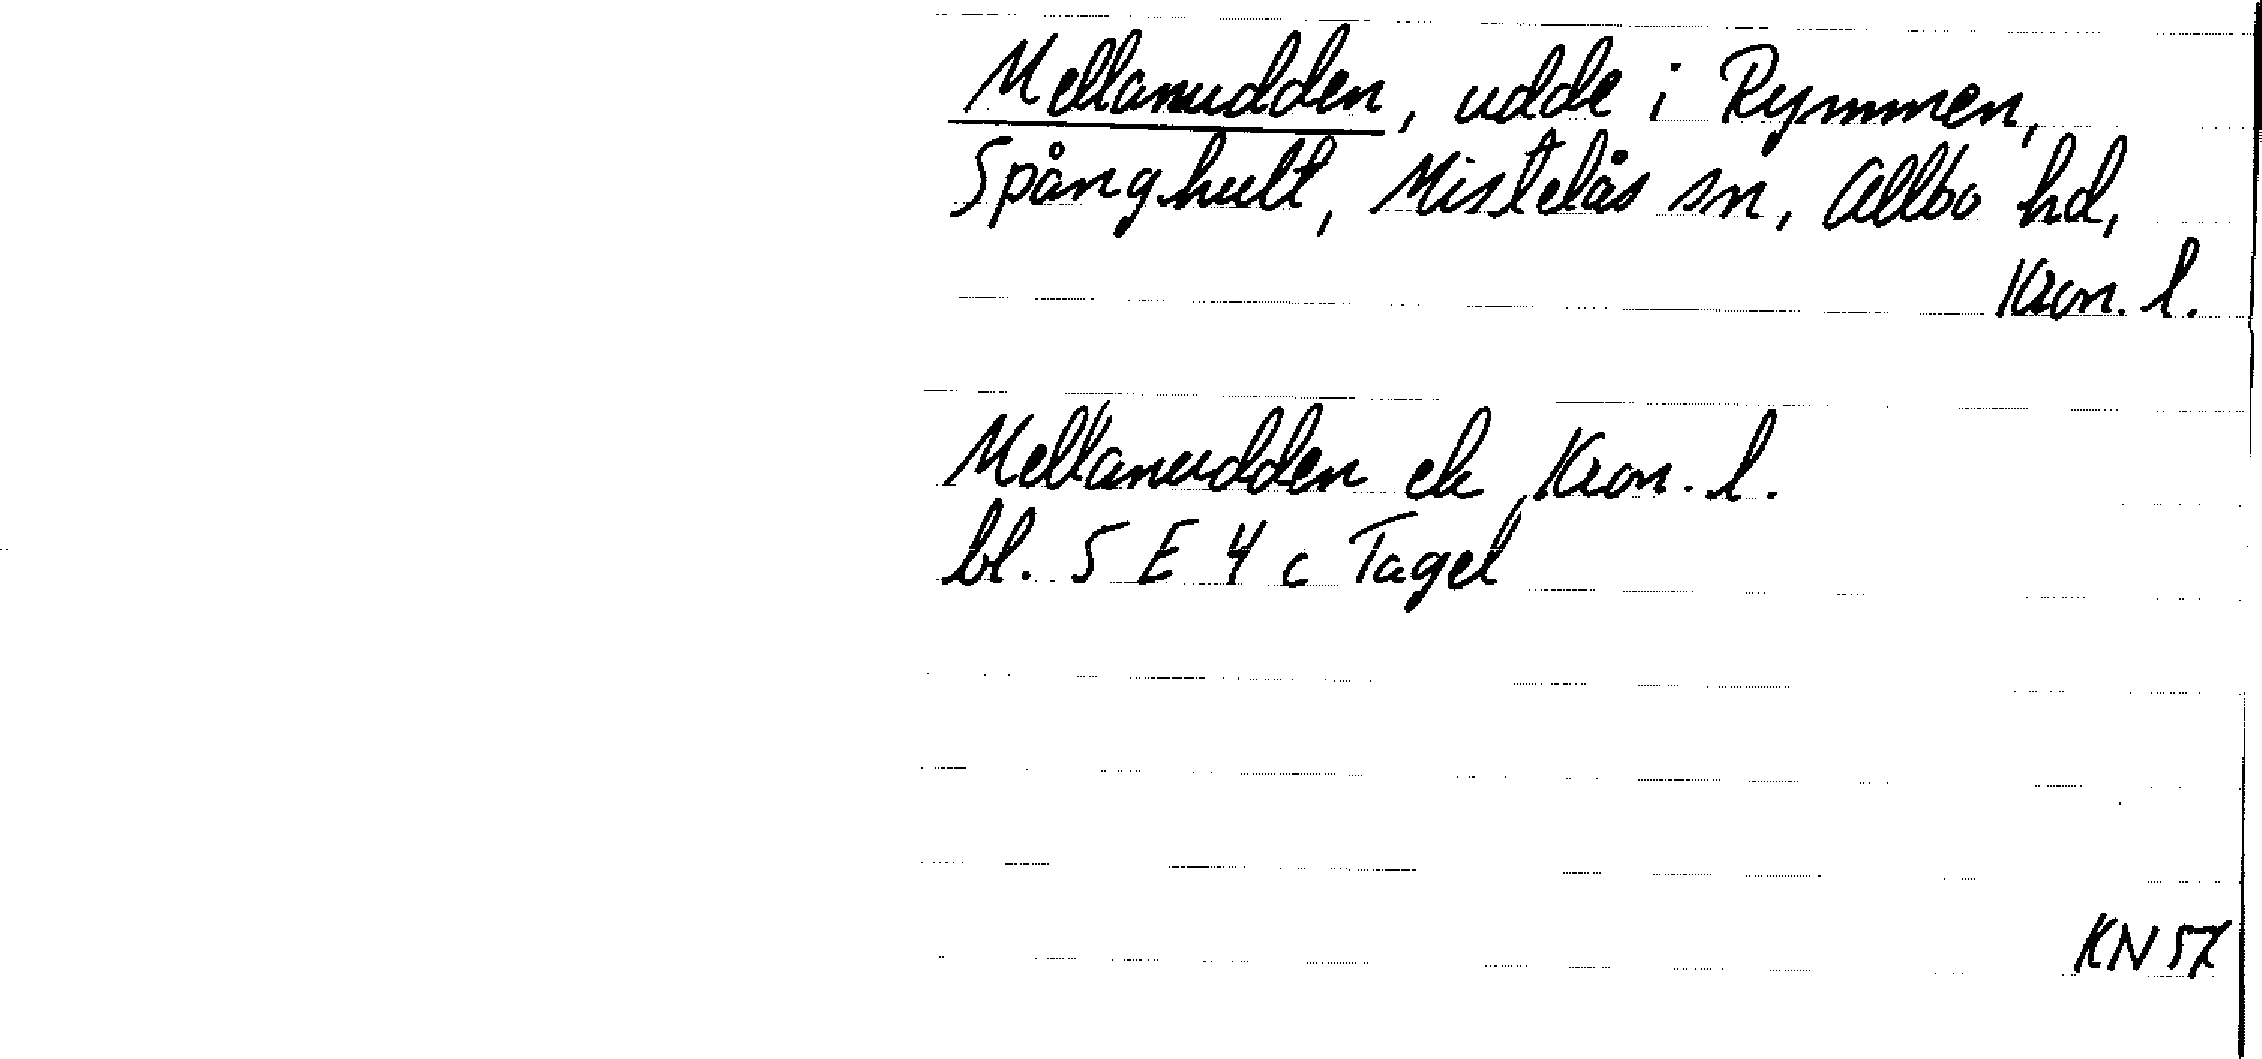 Mellanudden, udde i Rymmen,
Spånghult, Mistelås sn, Allbo hd,
Kron. l.
Mellanudden ek Kron. l.
bl. 5 E 4 c Tagel
KN 57